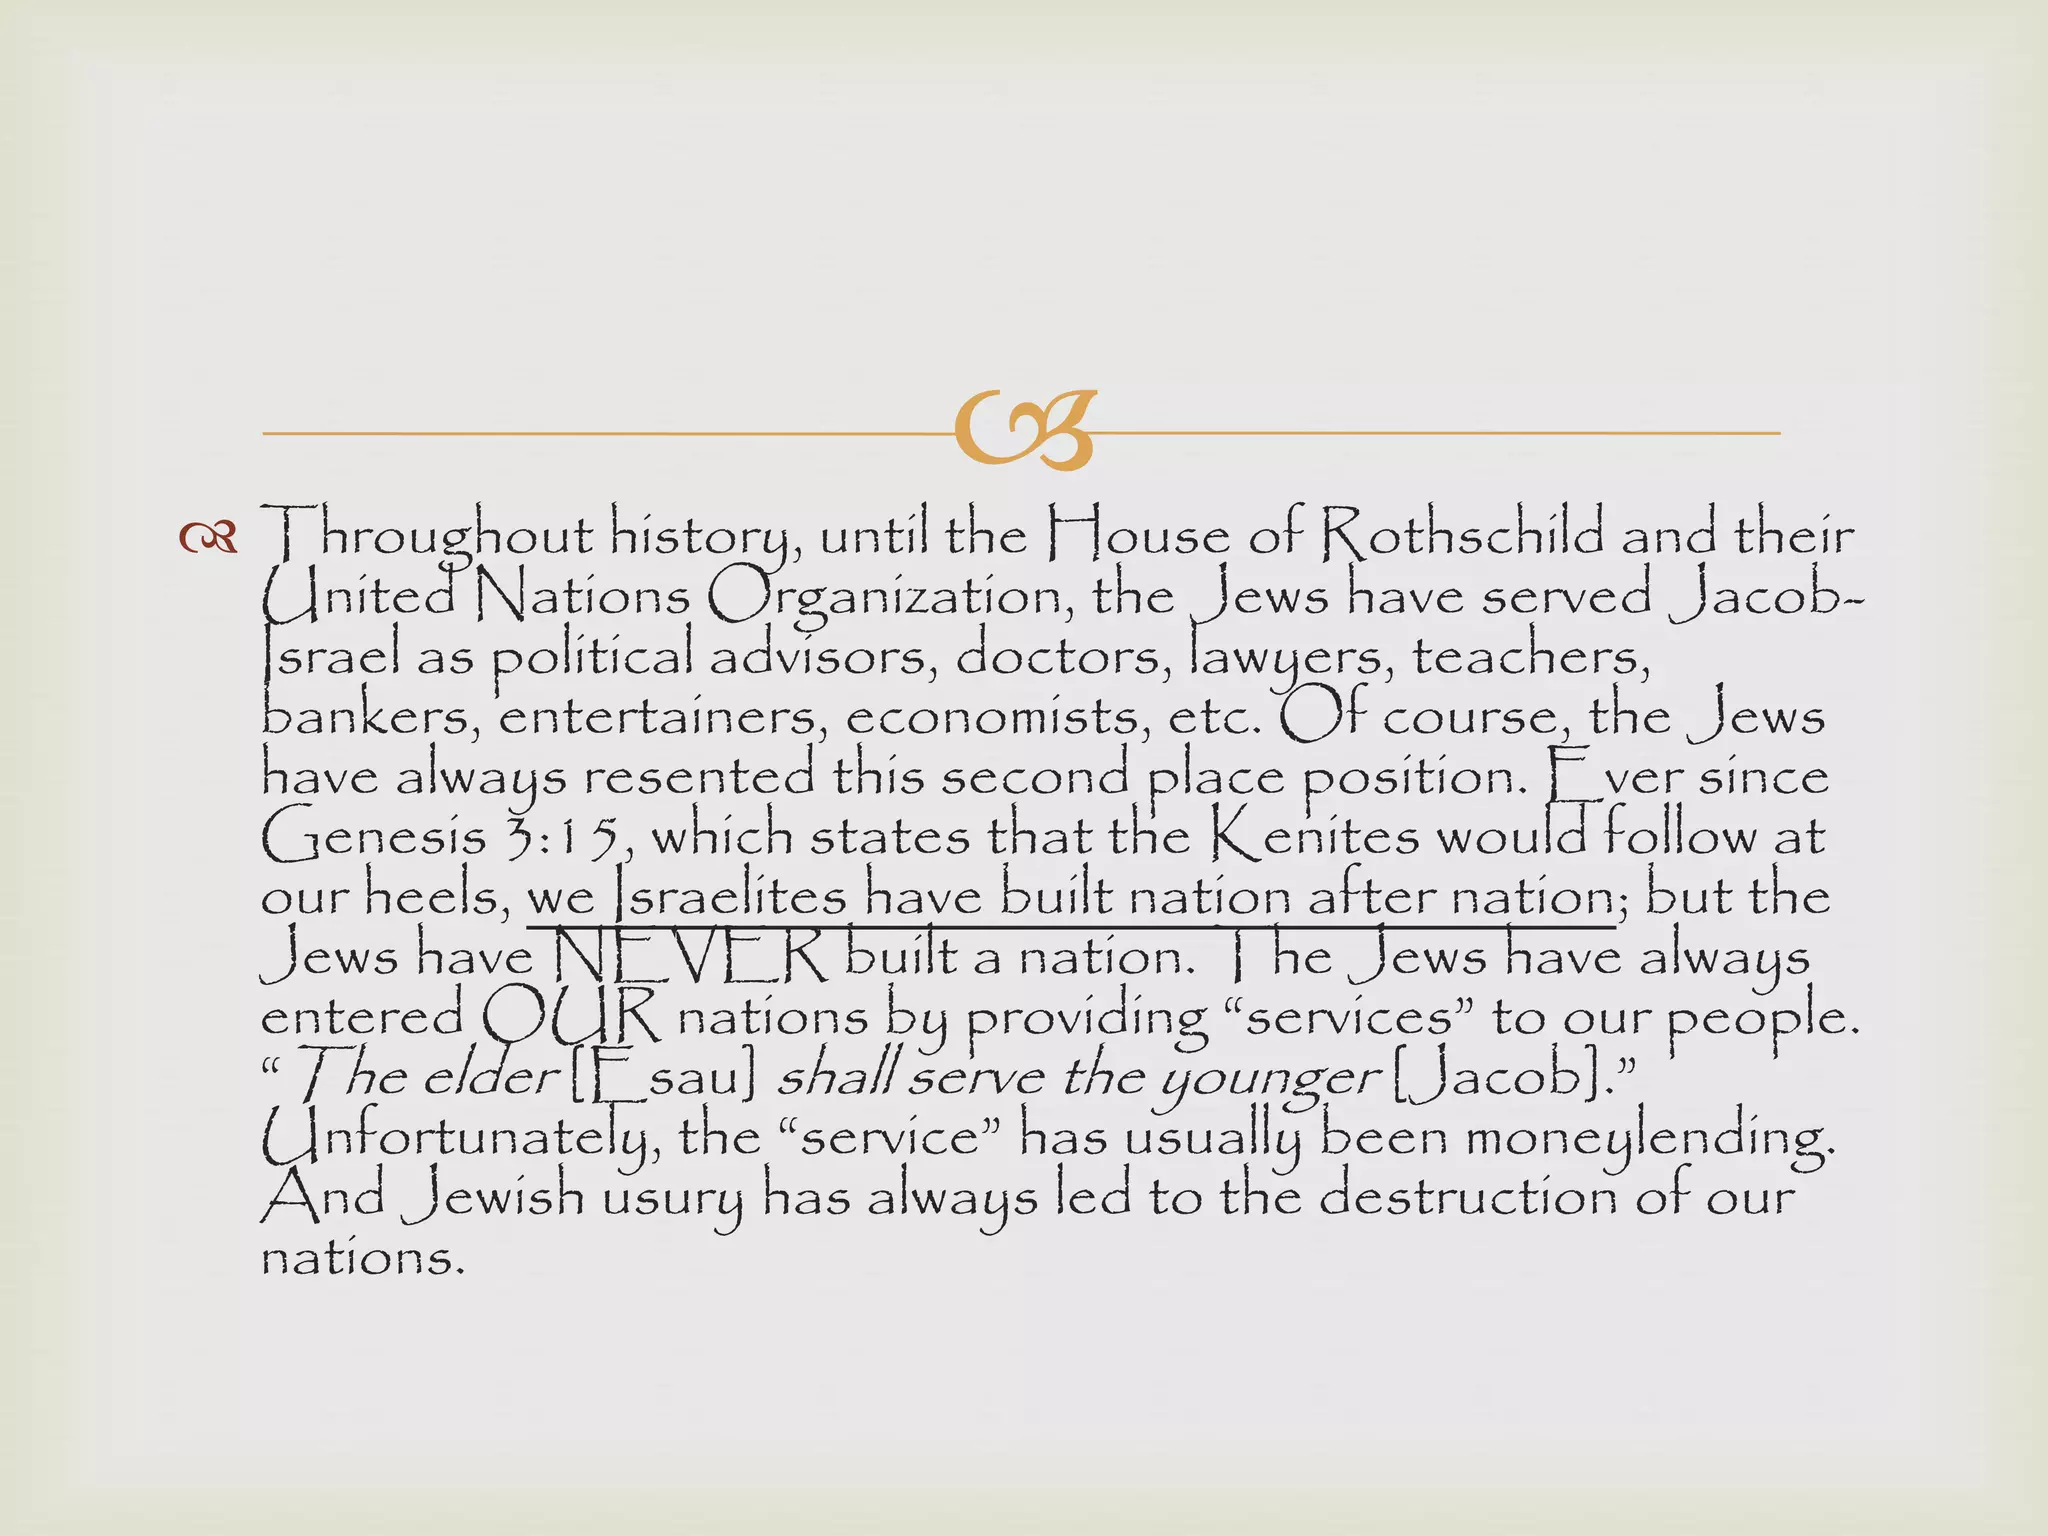 Throughout history, until the House of Rothschild and their
United Nations Organization, the Jews have served Jacob-
Israel as political advisors, doctors, lawyers, teachers,
bankers, entertainers, economists, etc. Of course, the Jews
have always resented this second place position. Ever since
Genesis 3:15, which states that the Kenites would follow at
our heels, we Israelites have built nation after nation; but the
Jews have NEVER built a nation. The Jews have always
entered OUR nations by providing “services” to our people.
“The elder [Esau] shall serve the younger [Jacob].”
Unfortunately, the “service” has usually been moneylending.
And Jewish usury has always led to the destruction of our
nations.